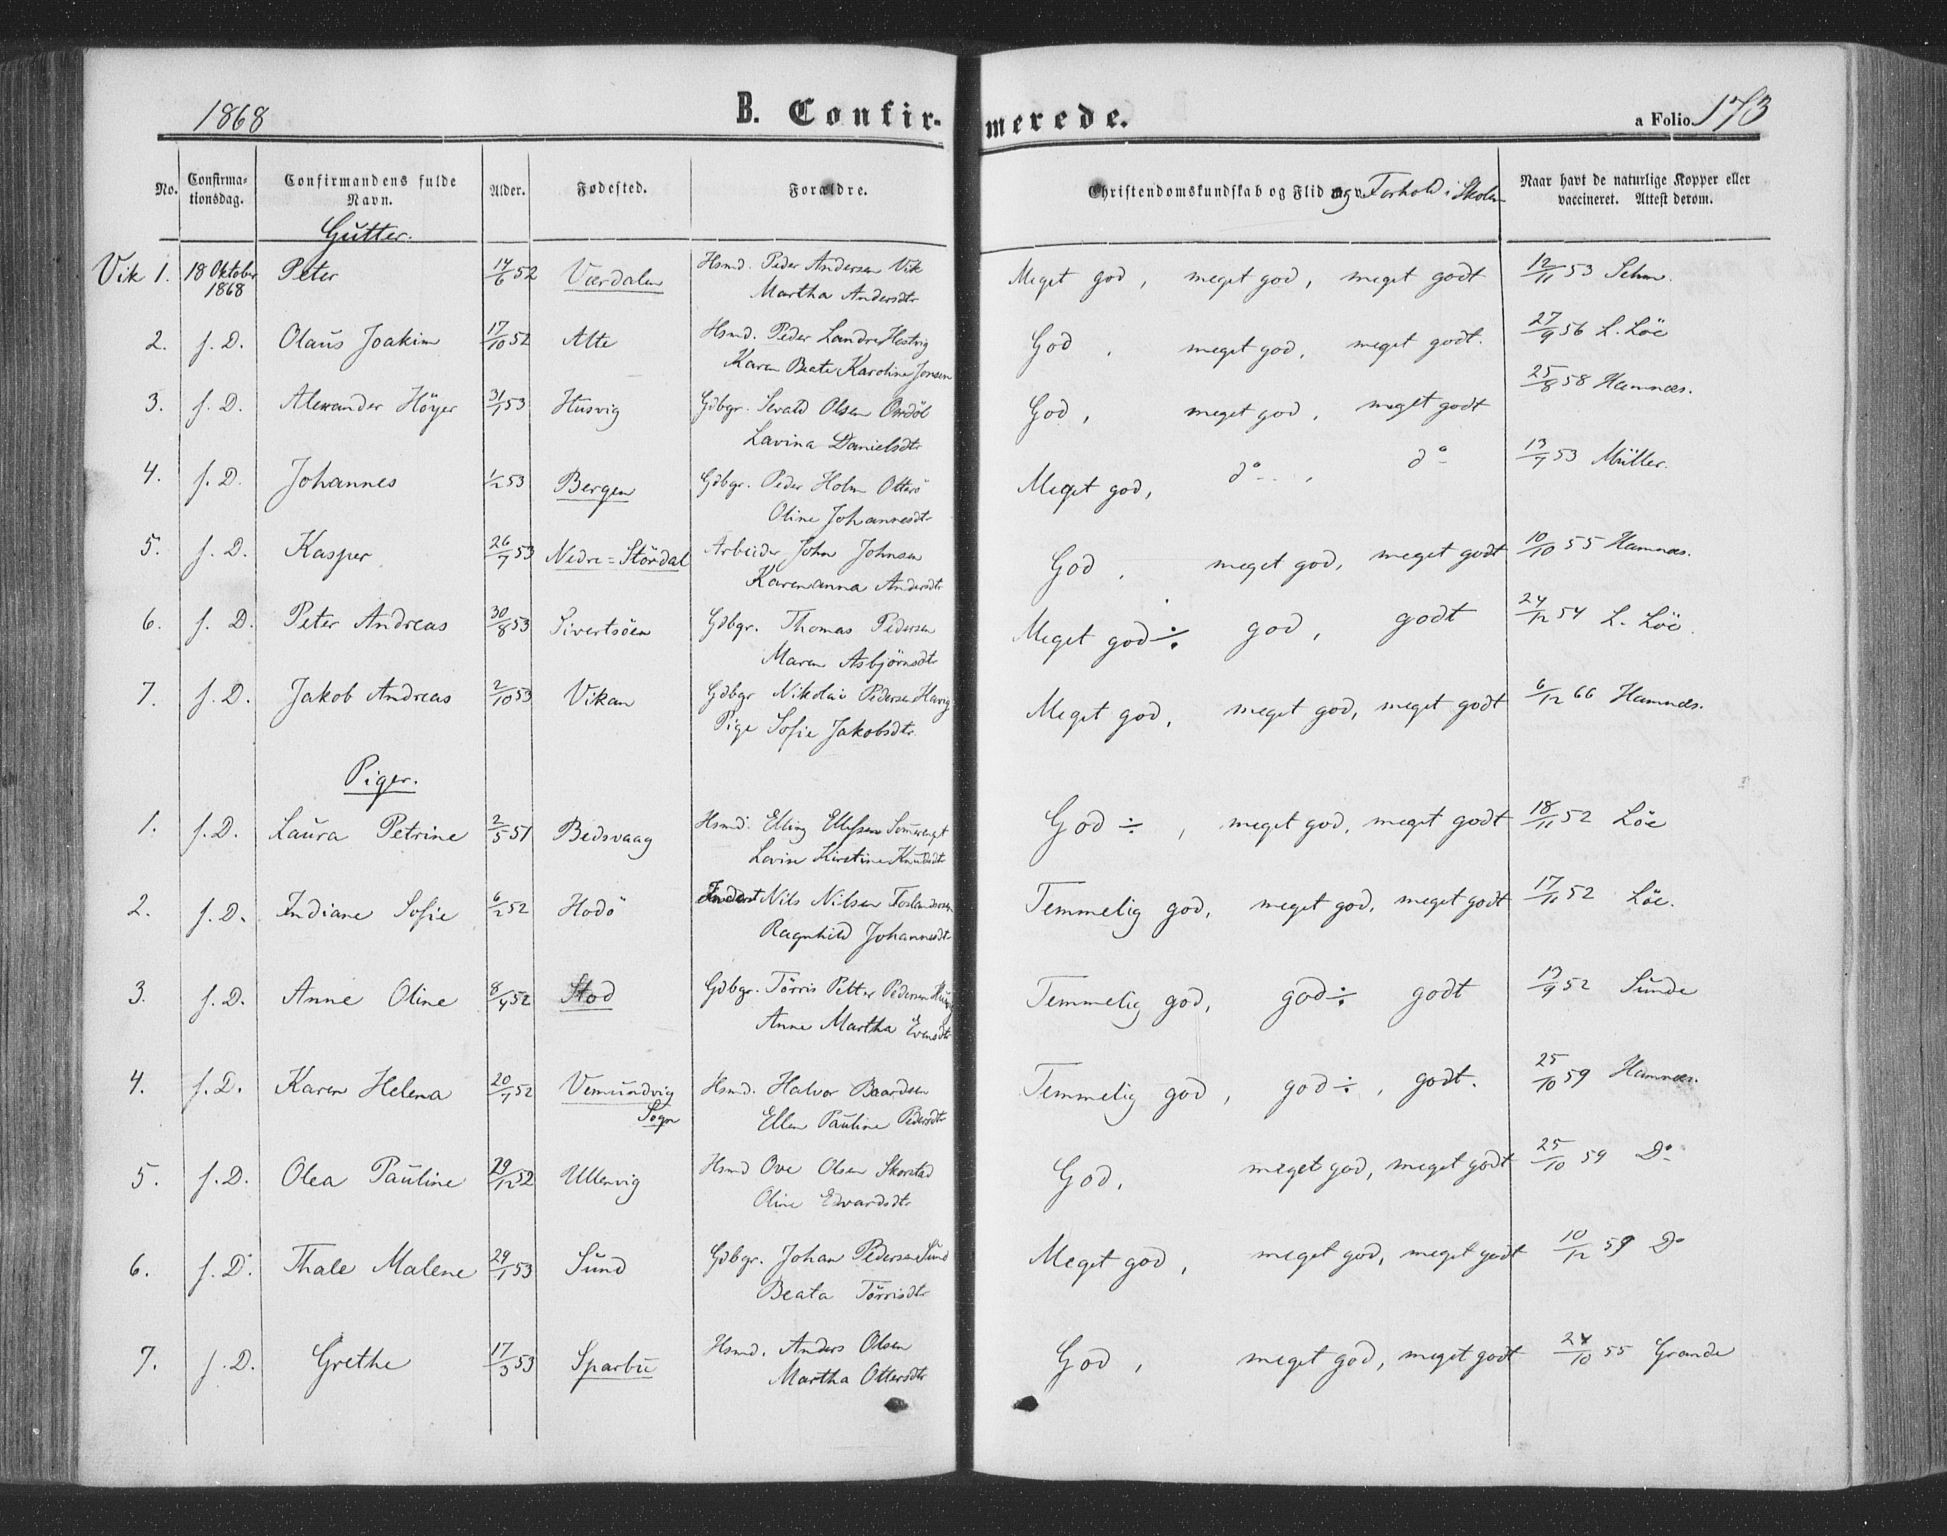 1868 B. Confirmerede. a Folio 173
No. Confirmationsdag. Confirmandens fulde Navn. Alder. Fødested. Forældre. Christendomskundskab og Flid og Forhold i Skolen Naar havt de naturlige Kopper eller vaccineret. Attest derom.
Gutter.
Vik 1. 18 Oktober 1868 Peter 14/6 52 Værdalen Hsmd. Peder Andersen Vik Meget god, meget god, meget godt 12/11 53 Sehm.
Martha Andersdtr
2. f. D. Olaus Joakim 17/10 52 Alte Hsmd. Peder Landre Hestvig God, meget god, meget godt. 27/9 56 L. Löe
Karen Beate Karoline Jonsen
3. f. D. Alexander Höyer 31/1 53 Husvig Gdbgr. Sevald Olsen God, meget god, meget godt 25/8 58 Hamnæs.
Lavina Danielsdtr
4. f. D. Johannes 1/2 53 Bergen Gdbgr. Peder Holm Otterö Meget god, do, do 13/7 53 Müller.
Oline Johannesdtr
5. f. D. Kasper 26/7 53 Nedre=Stördal Arbeider John Johnsen God, meget god, meget godt 10/10 55 Hamnæs.
Karenanna Andersdtr
6. f. D. Peter Andreas 30/8 53 Sivertsöen Gdbgr. Thomas Pedersen Meget god ÷, god, godt 24/12 54 L. Löe.
Maren Asbjörnsdtr
7. f. D. Jakob Andreas 2/10 53 Vikan Gdbgr Nikolai Pedersen Meget god, meget god, meget godt 6/12 66 Hamnæs.
Pige Sofie Jakobsdtr.
Piger.
1. f. D. Laura Petrine 2/5 51 Bedsvaag Hsmd. Elling Ellefsen God ÷, meget god, meget godt 18/11 52 Löe
Lovise Kirstine Knudsdtr
2. f. D. Indiane Sofie 6/2 52 Hodö Inderst Nils Nilsen Temmelig god, meget god, meget godt 17/11 52 Löe.
Ragnhild Johannesdtr
3. f. D. Anne Oline 8/4 52 Stod Gdbgr. Törris Petter Pedersen Temmelig god, god ÷ godt 13/9 52 Sunde
Anne Martha Evensdtr
4. f. D. Karen Helena 20/1 52 Vemundvig Sogn Hsmd. Halvor Baardsen Temmelig god, god ÷, godt. 25/10 59 Hamnæs.
Ellen Pauline Pedersdtr
5. f. D. Olea Pauline 29/12 52 Ullervig Hsmd Ove Olsen Skorstad God, meget god, meget godt 25/10 59 Do
Oline Edvardsdtr
6. f. D. Thale Malene 29/1 53 Sund Gdbgr. Johan Pedersen Sund Meget god, meget god, meget godt 10/12 59 Do
Beata Törrisdtr
7. f. D. Grethe 17/3 53 Sparbu Hsmd. Anders Olsen God, meget god, meget godt 24/10 55 Grande
Martha Ottersdtr